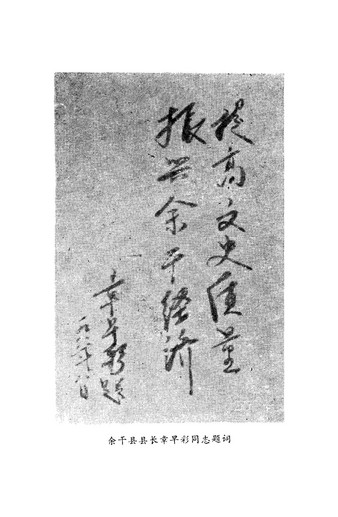 提高文史质量
振兴余干经济
章早彩题
一九八六年八月
余干县县长章早彩同志题词